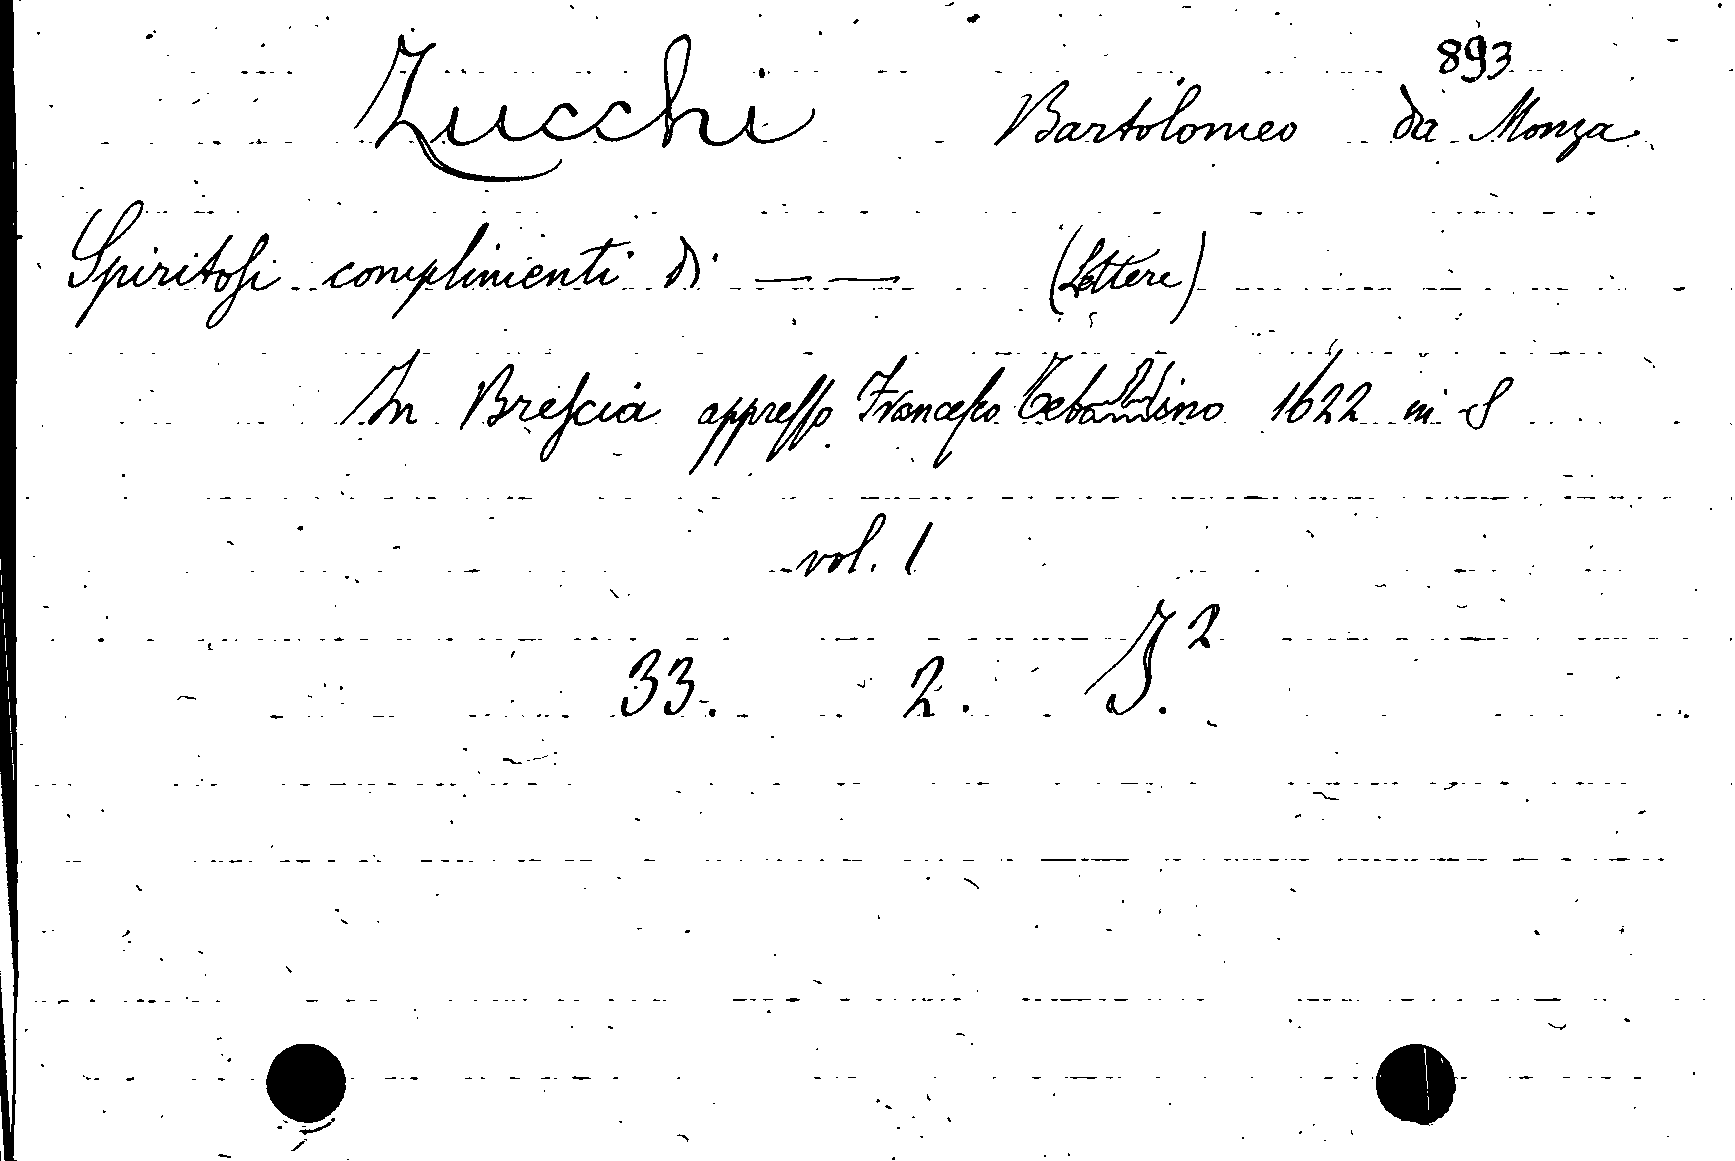 893
Zucchi Bartolomeo da Monza
Spiritoſi complimenti di — — (Lettere)
In Breſcia appreſſo Franceſco Tebaldino 1622 in 8
vol. 1
33. 2. J.²